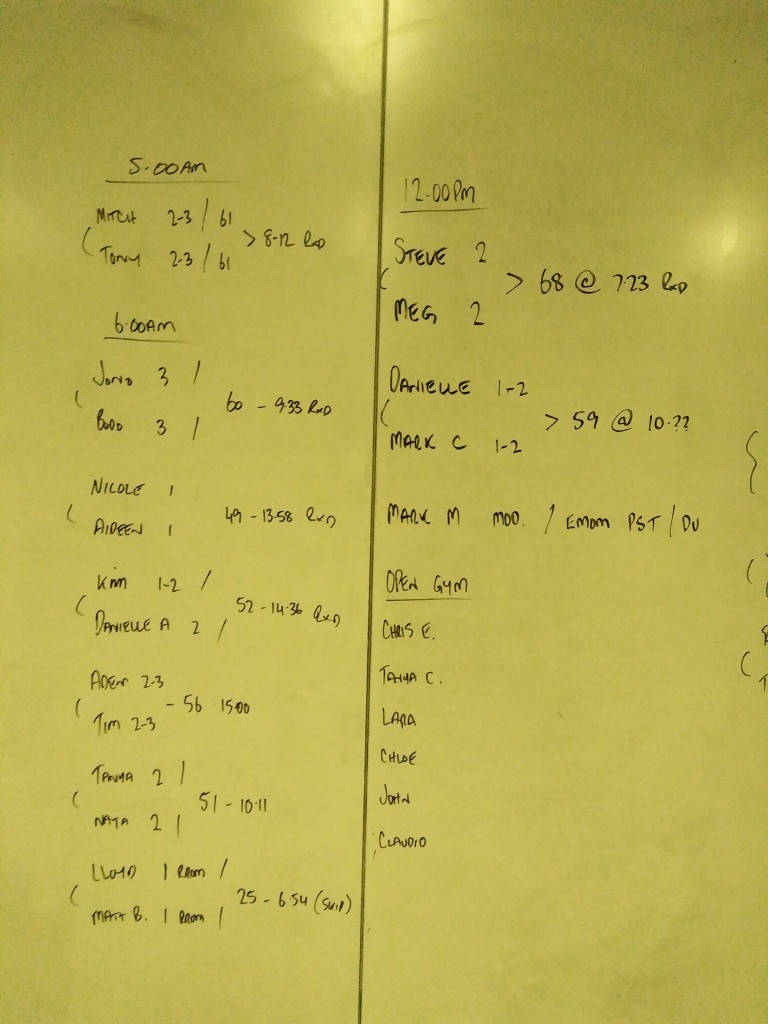 5.00AM
MITCH 2-3 / 61
> 8-12 RXD
TONY 2-3 / 61
6.00AM
JONO 3 /
60 - 9.33 RXD
BODO 3 /
NICOLE 1
49 - 13.58 RXD
AIDEEN 1
KIM 1-2 /
52 - 14.36 RXD
DANIELLE A 2 /
ADEN 2-3
- 56 15.00
TIM 2-3
TANYA 2 /
51 - 10.11
NATA 2 /
LLOYD 1 /
25 - 6.54 (SKIP)
MATT B. 1 /
12.00PM
STEVE 2
> 68 @ 7.23 RXD
MEG 2
DANIELLE 1-2
> 59 @ 10.??
MARK C 1-2
MARK M MOD. / EMOM PST / DU
OPEN GYM
CHRIS E.
TANYA C.
LARA
CHLOE
JOHN
CLAUDIO